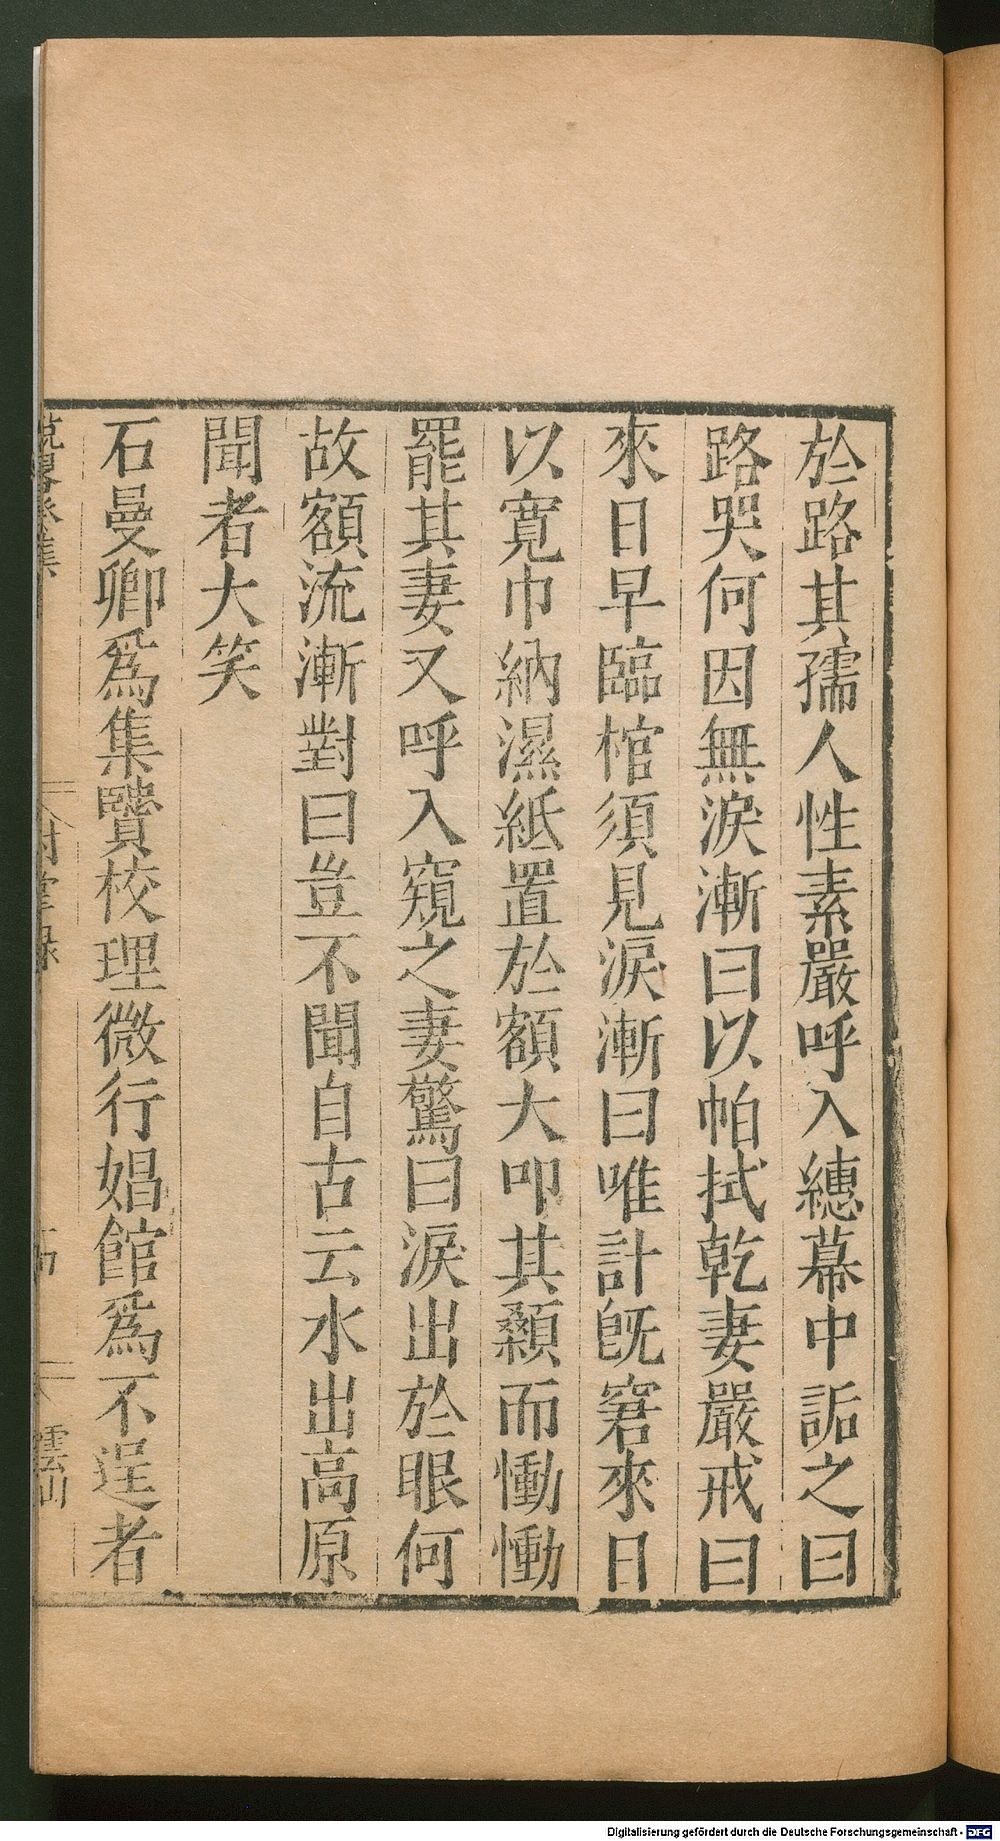 於路其孺人性素嚴呼入繐幕中詬之曰
路哭何因無淚漸曰以帕拭乾妻嚴戒曰
來日早臨棺須見淚漸曰唯計旣窘來日
以寬巾納濕紙置於額大叩其顙而慟慟
罷其妻又呼入窺之妻驚曰淚出於眼何
故額流漸對曰豈不聞自古云水出高原
聞者大笑
石曼卿爲集賢校理微行娼館爲不逞者
Digitalisierung gefördert durch die Deutsche Forschungsgemeinschaft - DFG